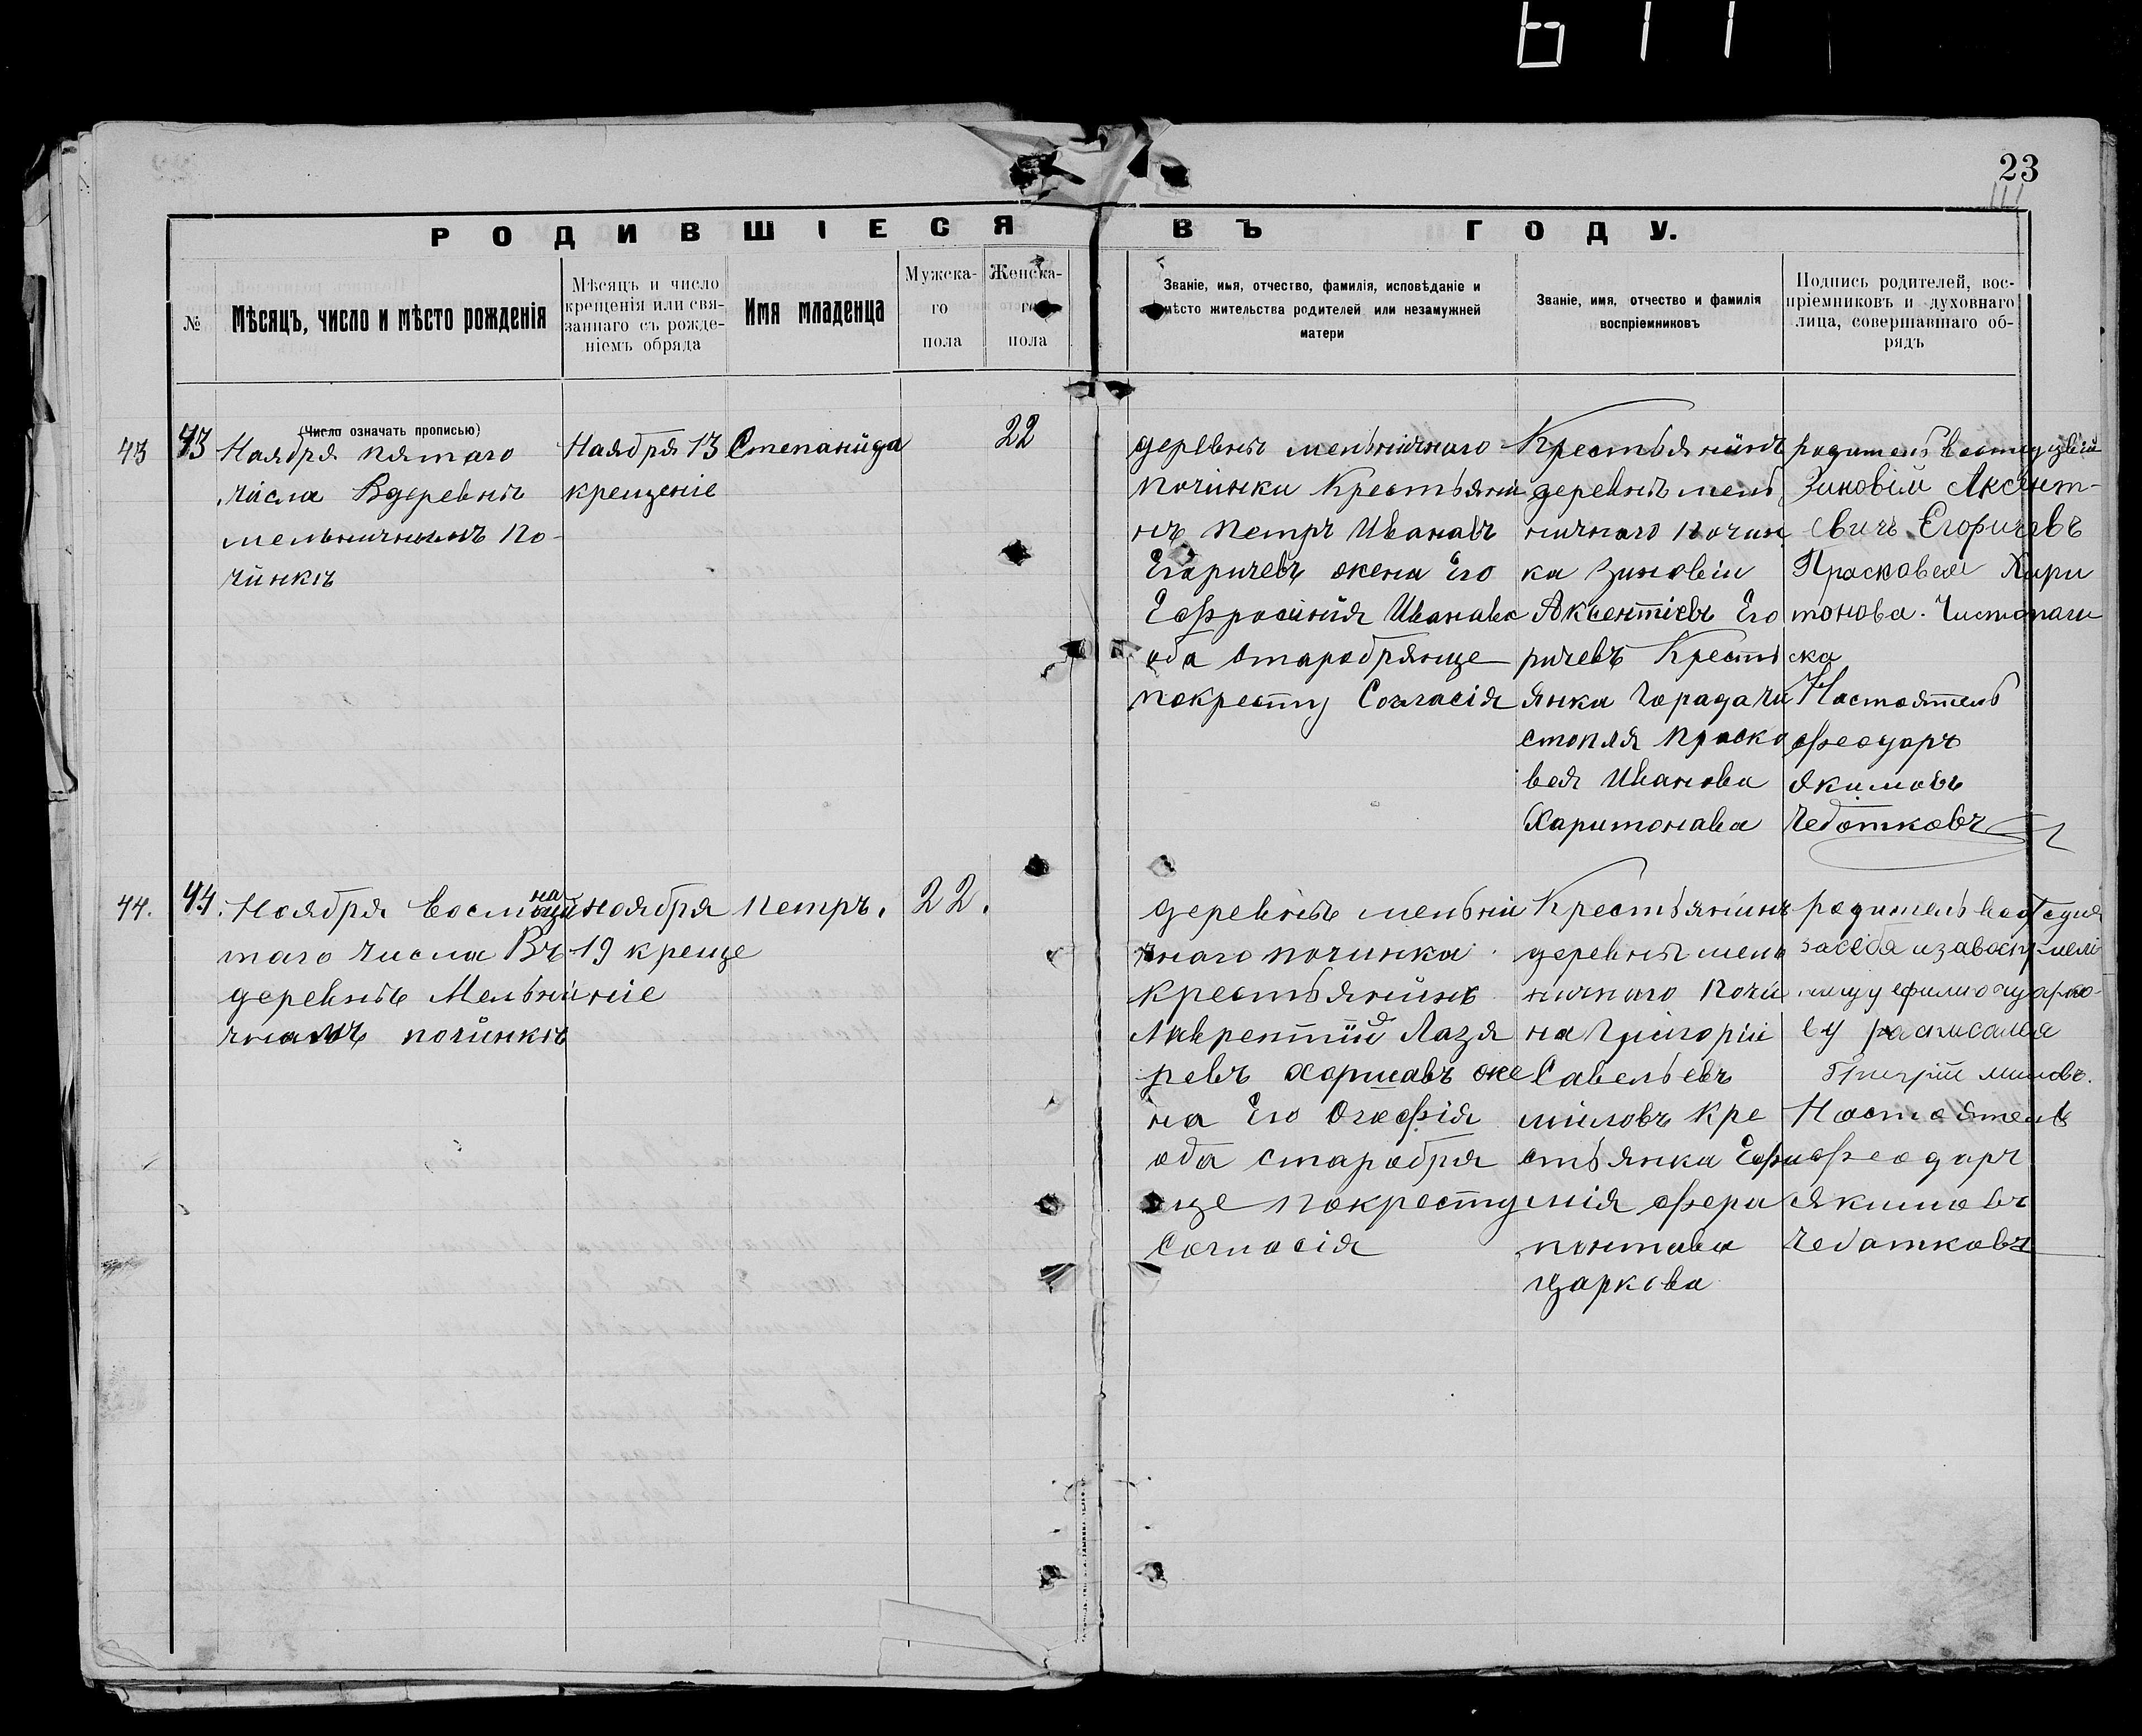 611
23
РОДИВШІЕСЯ ВЪ ГОДУ.
№
Мѣсяцъ, число и мѣсто рожденія
Мѣсяцъ и число
крещенія или свя-
заннаго съ рожде-
ніемъ обряда
Имя младенца
Мужска-
го
пола
Женска-
го
пола
Званіе, имя, отчество, фамилія, исповѣданіе и
мѣсто жительства родителей или незамужней
матери
Званіе, имя, отчество и фамилія
воспріемниковъ
Подпись родителей, вос-
пріемниковъ и духовнаго
лица, совершавшаго об-
рядъ
43
43
(Число означать прописью)
Наября пятаго
числа Вдеревнѣ
мельничномъ По-
чинкѣ
Наября 13
крещеніе
Степанида
22
деревнѣ мельничнаго
починки Крестьяни
нъ Петръ Иванавъ
Егаричевъ жена Его
Ефросинія Иванава
оба старобрянце
покресту Согласія
Крестьянинъ
деревнѣ мель
ничнаго Почин
ка Зиновіи
Аксентіевъ Его
ричевъ Кресть
янка горада Чи
стопля Праско
вея Иванова
Харитонава
родитель
Зиновіи Аксент-
евичъ Егоричевъ
Прасковея Хари
тонова. Чистопаги
ска
Настоятель
Феодаръ
Якимовъ
Чеботковъ
44.
44.
Ноября восмнаци
таго числа Въ
деревнѣ Мельни
чнамъ починкѣ
ноября
19 креще
ніе
Петръ.
22.
деревнѣ мельни
чнаго починка
крестьянинъ
Лаврентіи Лазя
ревъ жорнавъ же
на Его Огафія
оба старобря
нце покресту
Согласія
Крестьянинъ
деревнѣ мель
ничнаго Почи
на Григоріи
Савельевъ
миловъ Кре
стьянка Ефи
мія Фера
понтава
Царкова
родитель
засебя изавоспрмели
ницу ефимю царко-
ву расписался
Григріи миловъ.
Настоятель
Феодаръ
Якимовъ
Чебатковъ